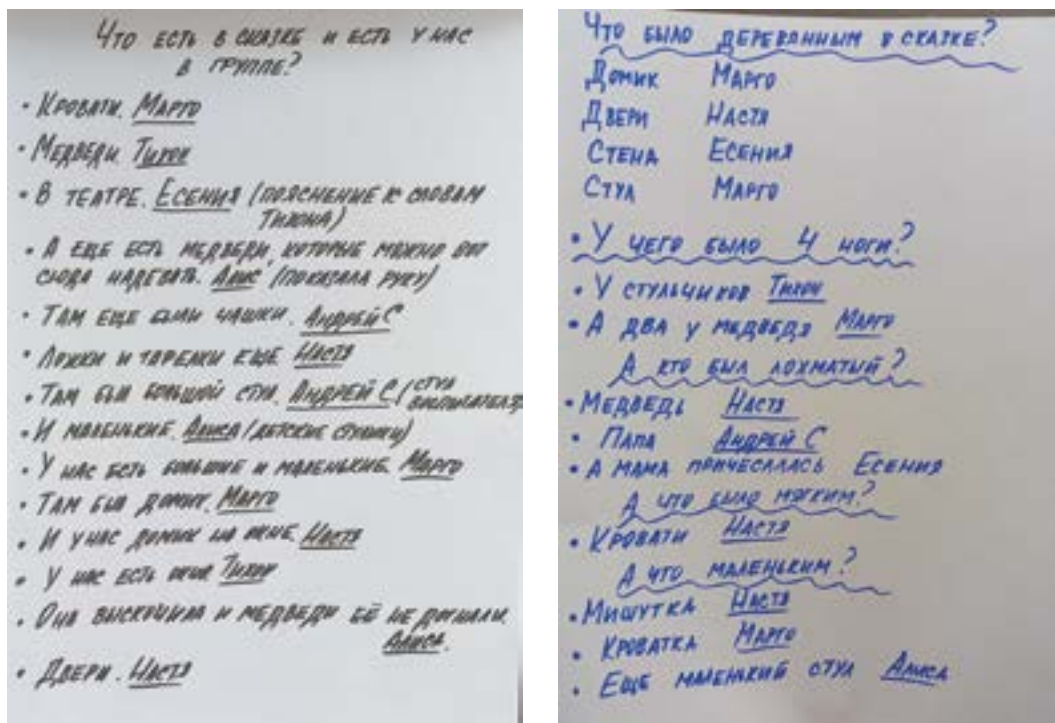 Что есть в сказке и есть у нас
в группе?
• Кровати. Марго
• Медведи. Тихон
• В театре. Есения (пояснение к словам
Тихона)
• А еще есть медведи, которые можно вот
сюда надевать. Алис (показала руку)
• Там еще были чашки. Андрей С
• Ложки и тарелки еще Настя
• Там был большой стул. Андрей С (стул
воспитателя)
• И маленькие. Алиса (детские стулики)
• У нас есть большие и маленькие. Марго
• Там был домик. Марго
• И у нас домик на окне. Настя
• У нас есть окна Тихон
• Она выскочила и медведи её не догнали.
Алиса.
• Двери. Настя
Что было деревянным в сказке?
Домик Марго
Двери Настя
Стена Есения
Стул Марго
• У чего было 4 ноги?
• У стульчиков Тихон
• А два у медведя Марго
А кто был лохматый?
• Медведь Настя
• Папа Андрей С
• А мама причесалась Есения
А что было мягким?
• Кровати Настя
А что маленьким?
• Мишутка Настя
• Кроватка Марго
• Еще маленький стул Алиса